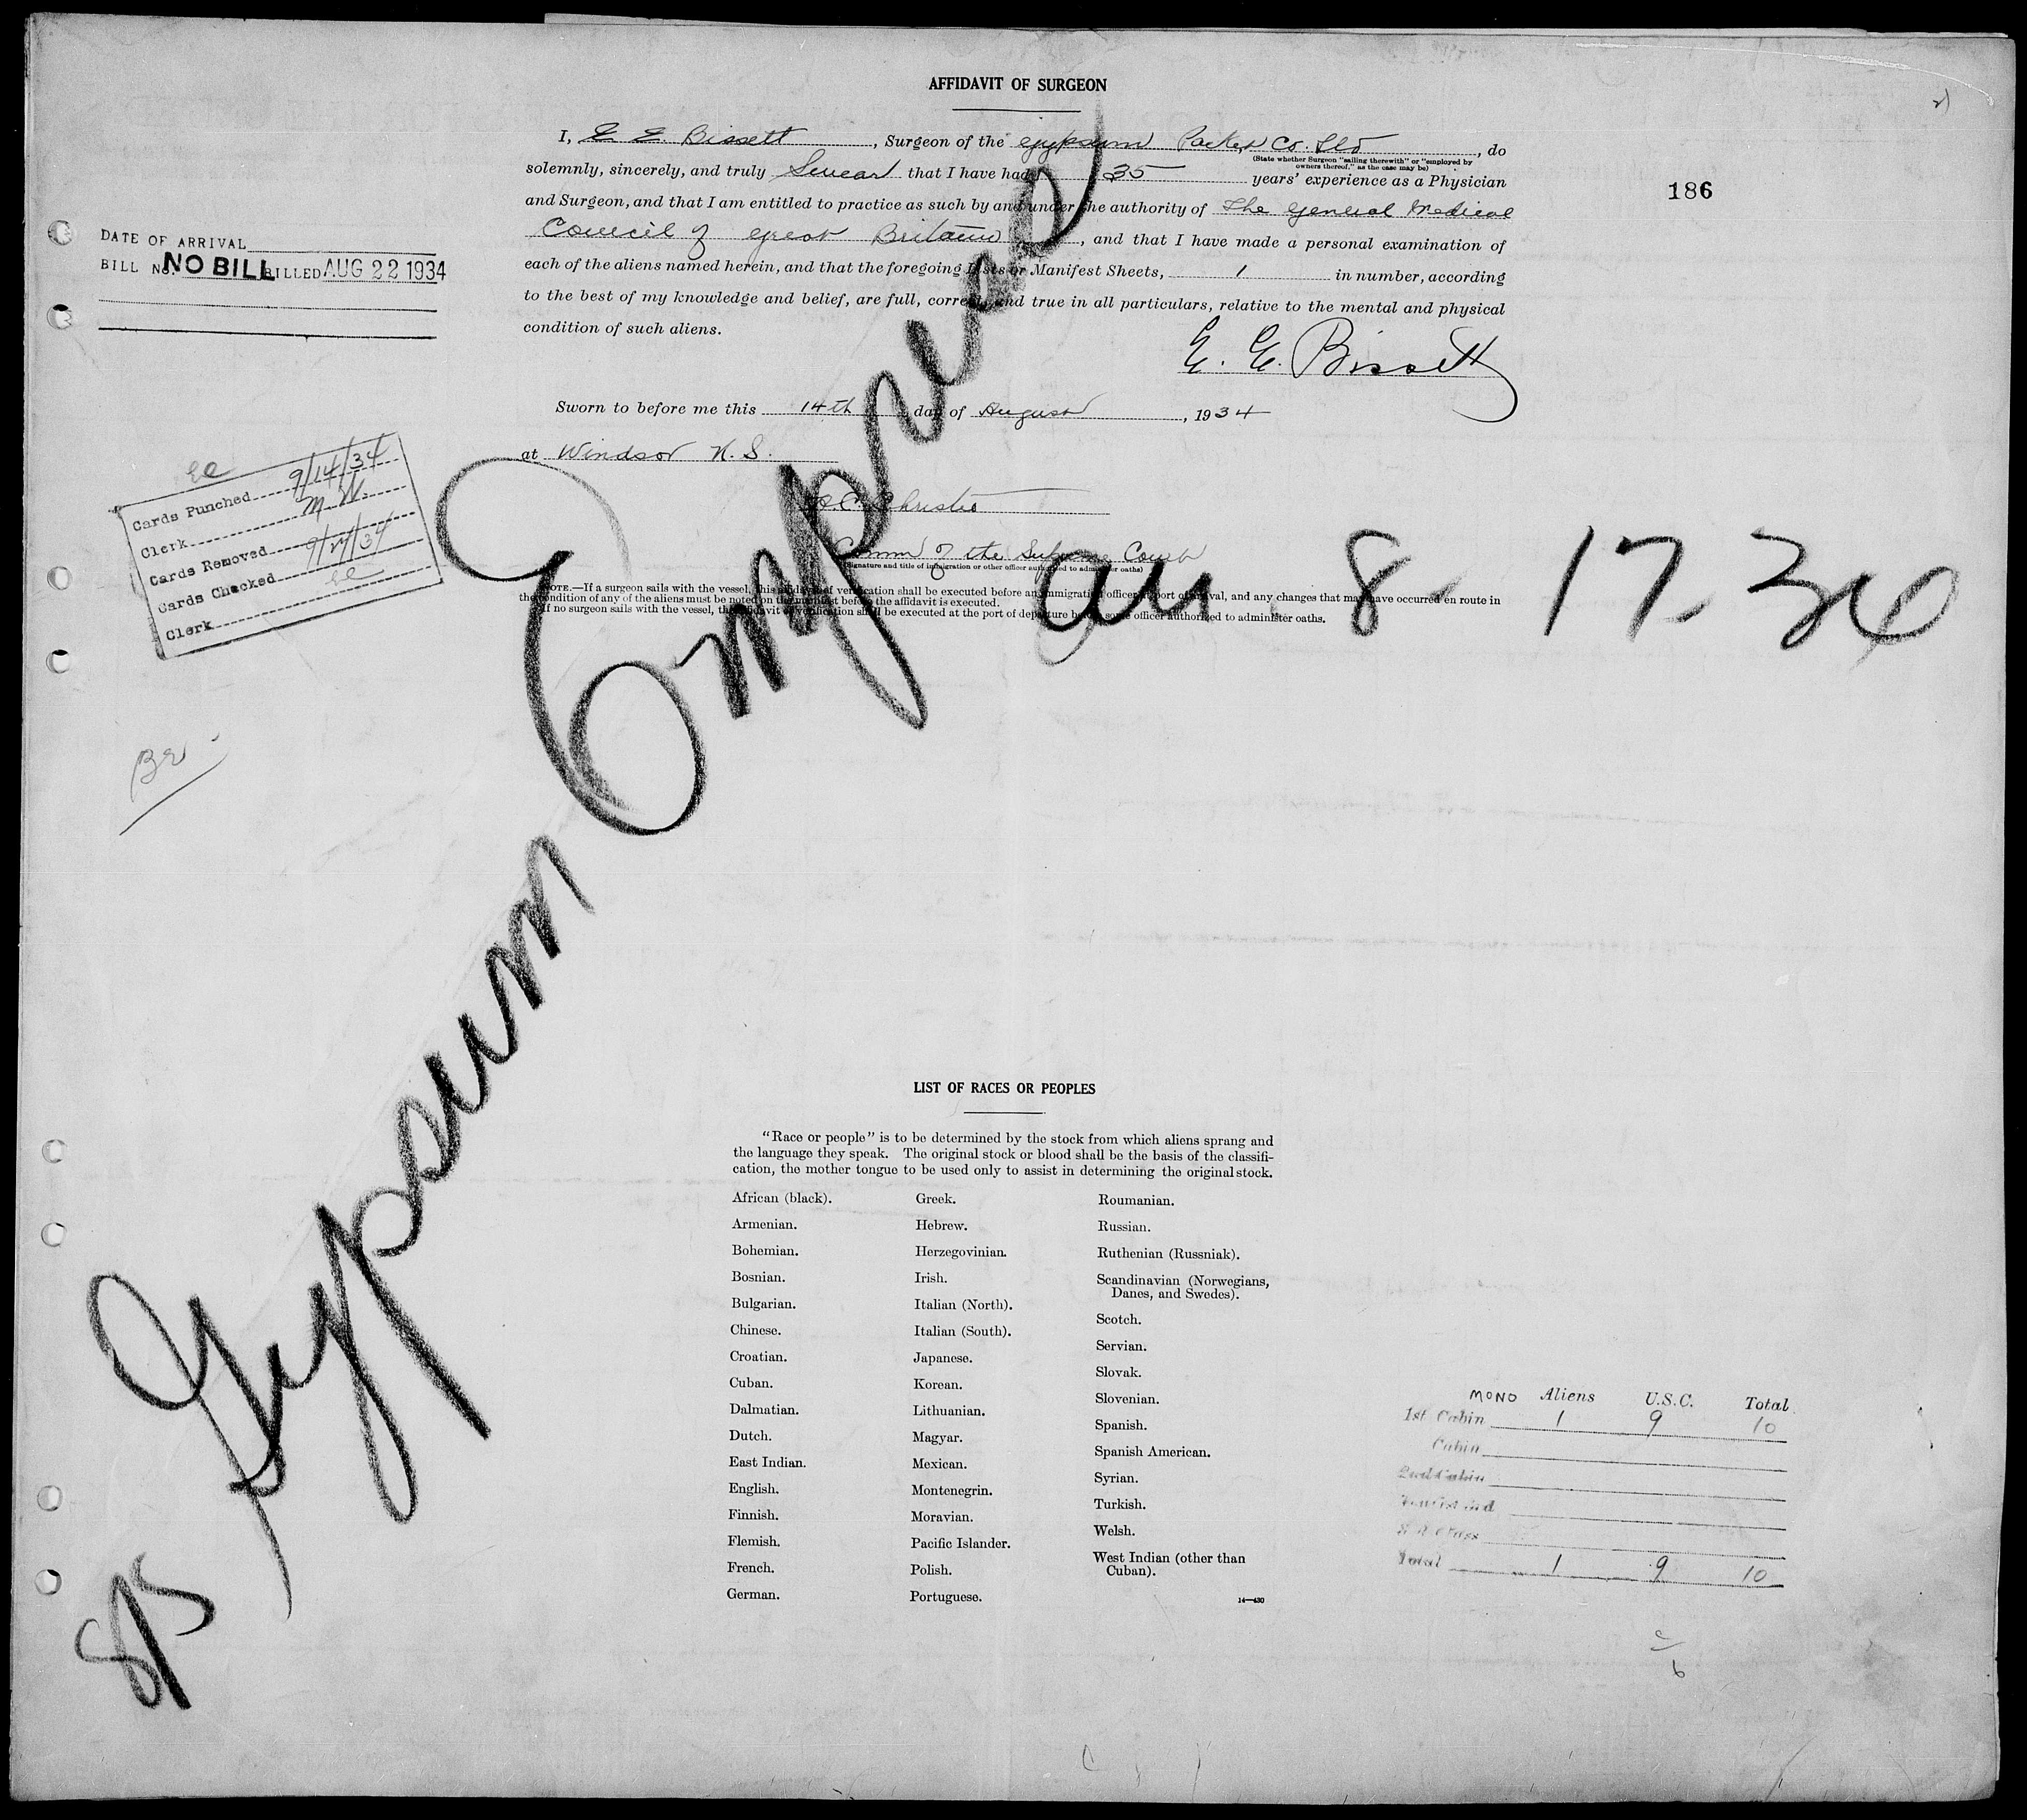 AFFIDAVIT OF SURGEON
I, E. E. Bissett, Surgeon of the Gypsum Packet Co. Ltd, do
(State whether Surgeon "sailing therewith" or "employed by
owners thereof," as the case may be)
solemnly, sincerely, and truly Swear that I have had 35 years' experience as a Physician
and Surgeon, and that I am entitled to practice as such by and under the authority of The General Medical
Council of Great Britain, and that I have made a personal examination of
each of the aliens named herein, and that the foregoing Lists or Manifest Sheets, 1 in number, according
to the best of my knowledge and belief, are full, correct, and true in all particulars, relative to the mental and physical
condition of such aliens.
E. E. Bissett
Sworn to before me this 14th day of August, 1934
at Windsor N.S.
Christie
Comm of the Supreme Court
(Signature and title of immigration or other officer authorized to administer oaths)
NOTE.—If a surgeon sails with the vessel, this affidavit of verification shall be executed before an immigration officer at port of arrival, and any changes that may have occurred en route in
the condition of any of the aliens must be noted on the manifest before the affidavit is executed.
If no surgeon sails with the vessel, this affidavit of verification shall be executed at the port of departure before some officer authorized to administer oaths.
186
DATE OF ARRIVAL
BILL No. NO BILL BILLED AUG 22 1934
ee
Cards Punched 9/14/34
Clerk M.W.
Cards Removed
Cards Checked 9/24/34
Clerk ee
Gypsum Empress
arr. 8-17-34
LIST OF RACES OR PEOPLES
"Race or people" is to be determined by the stock from which aliens sprang and
the language they speak. The original stock or blood shall be the basis of the classifi-
cation, the mother tongue to be used only to assist in determining the original stock.
African (black).
Armenian.
Bohemian.
Bosnian.
Bulgarian.
Chinese.
Croatian.
Cuban.
Dalmatian.
Dutch.
East Indian.
English.
Finnish.
Flemish.
French.
German.
Greek.
Hebrew.
Herzegovinian.
Irish.
Italian (North).
Italian (South).
Japanese.
Korean.
Lithuanian.
Magyar.
Mexican.
Montenegrin.
Moravian.
Pacific Islander.
Polish.
Portuguese.
Roumanian.
Russian.
Ruthenian (Russniak).
Scandinavian (Norwegians,
Danes, and Swedes).
Scotch.
Servian.
Slovak.
Slovenian.
Spanish.
Spanish American.
Syrian.
Turkish.
Welsh.
West Indian (other than
Cuban).
14—430
MONO Aliens U.S.C. Total
1st Cabin 1 9 10
Cabin
2nd Cabin
Tourist 3rd
Class
Total 1 9 10